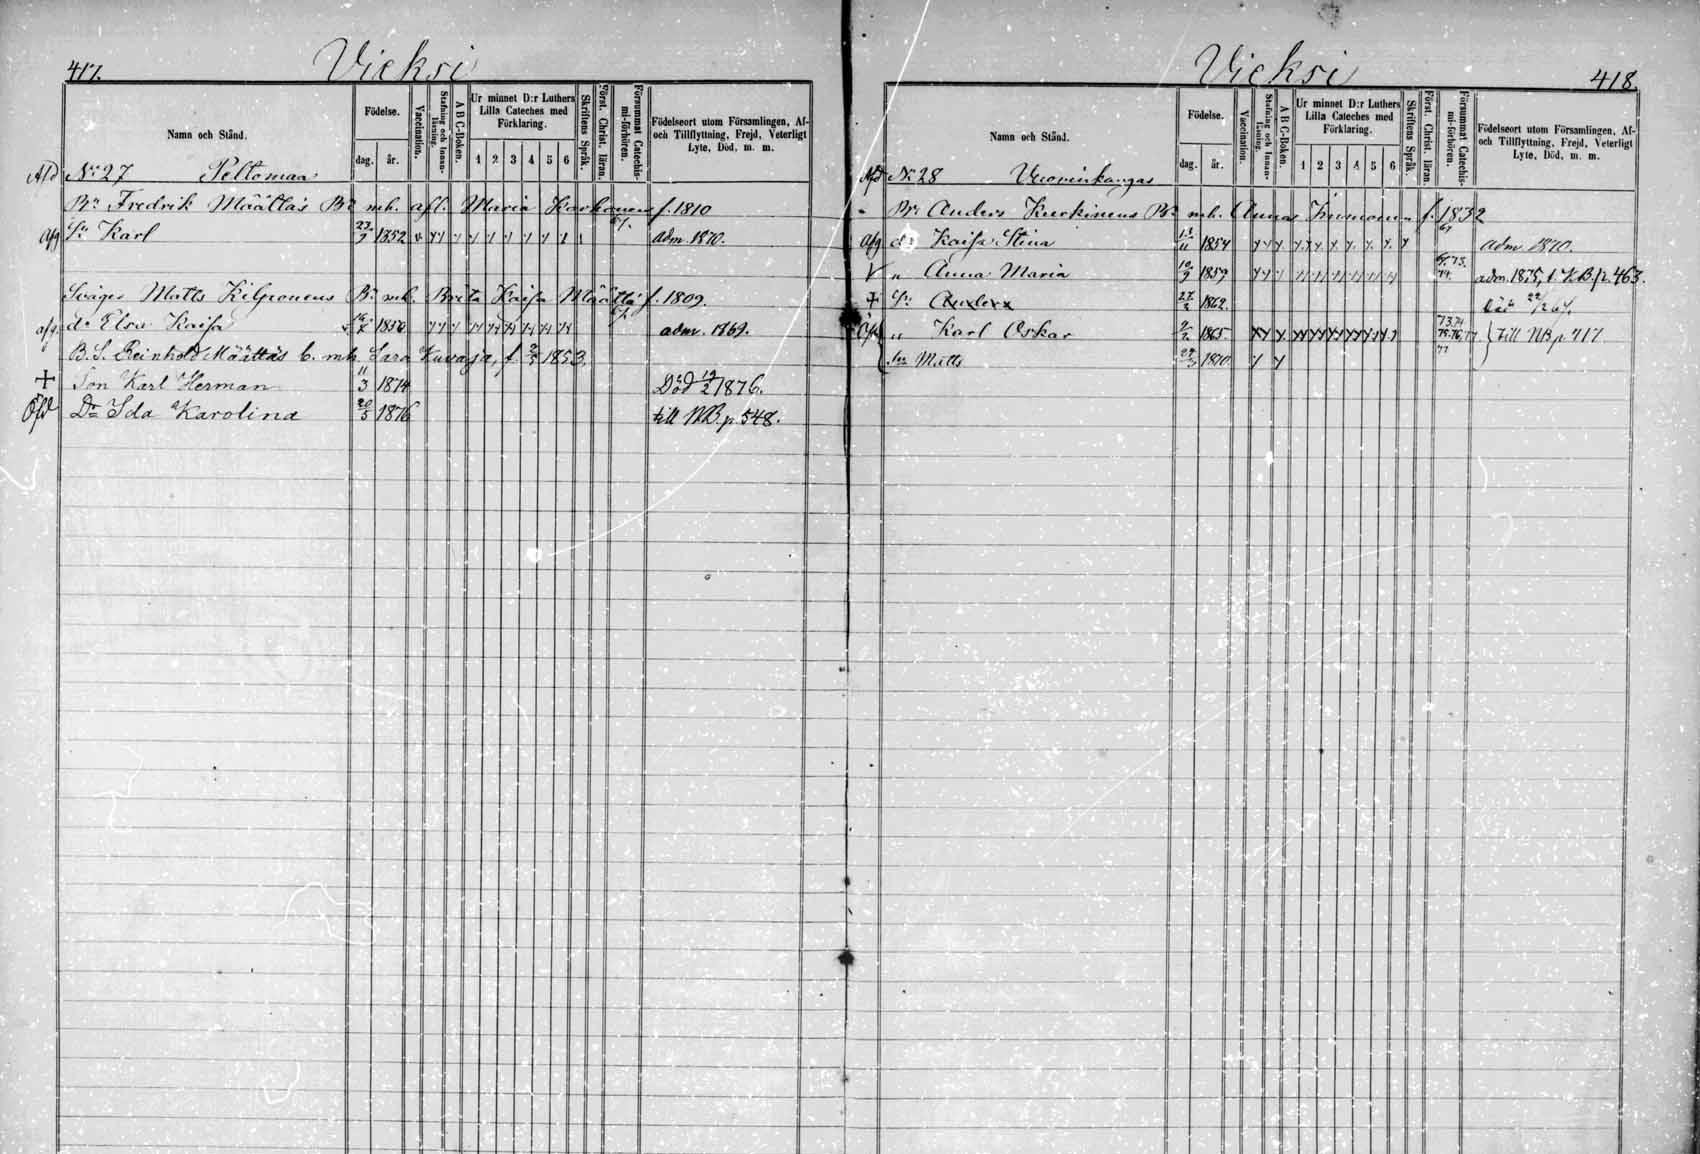 417. Vieksi
Namn och Stånd. Födelse. dag. år. Vaccination. Stafning och Innanläsning. A B C-Boken. Ur minnet D:r Luthers Lilla Cateches med Förklaring. 1 2 3 4 5 6 Skriftens Språk. Först. Christ. läran. Försummat Catechismi-förhören. Födelseort utom Församlingen, Af- och Tillflyttning, Frejd, Veterligt Lyte, Död, m. m.
Afd N:o 27 Peltomaa
Bn Fredrik Määttäs Br mh. afl. Maria Karhonens f. 1810
afg Sn Karl 27/9 1852 adm. 1870.
Sväger Matts Kilponens Br mh. Brita Kaisa Määttä f. 1809.
afg dr Elsa Kaisa 1850 adm. 1869.
B. S. Reinhold Määttäs b. mh. Sara Kuvaja, f. 2/5 1853.
+ Son Karl Herman 11/3 1874 Död 19/2 1876.
Öfd Dr Ida Karolina 20/5 1876 till NB. p. 548.
Vieksi 418.
Namn och Stånd. Födelse. dag. år. Vaccination. Stafning och Innanläsning. A B C-Boken. Ur minnet D:r Luthers Lilla Cateches med Förklaring. 1 2 3 4 5 6 Skriftens Språk. Först. Christ. läran. Försummat Catechismi-förhören. Födelseort utom Församlingen, Af- och Tillflyttning, Frejd, Veterligt Lyte, Död, m. m.
Afd N:o 28 Vuorinkangas
Br Anders Kurkinens Br mh. Annas f. 1832
afg dr Kaisa Stina 13/11 1854 adm. 1870.
" Anna Maria 10/9 1859 adm. 1875, t. KB p. 463.
+ Sn Anders 27/2 1862 Död 22/2 67.
" Karl Oskar 9/2 1865 73.74 75.76.77 till NB p. 717
Sn Matts 1870 77